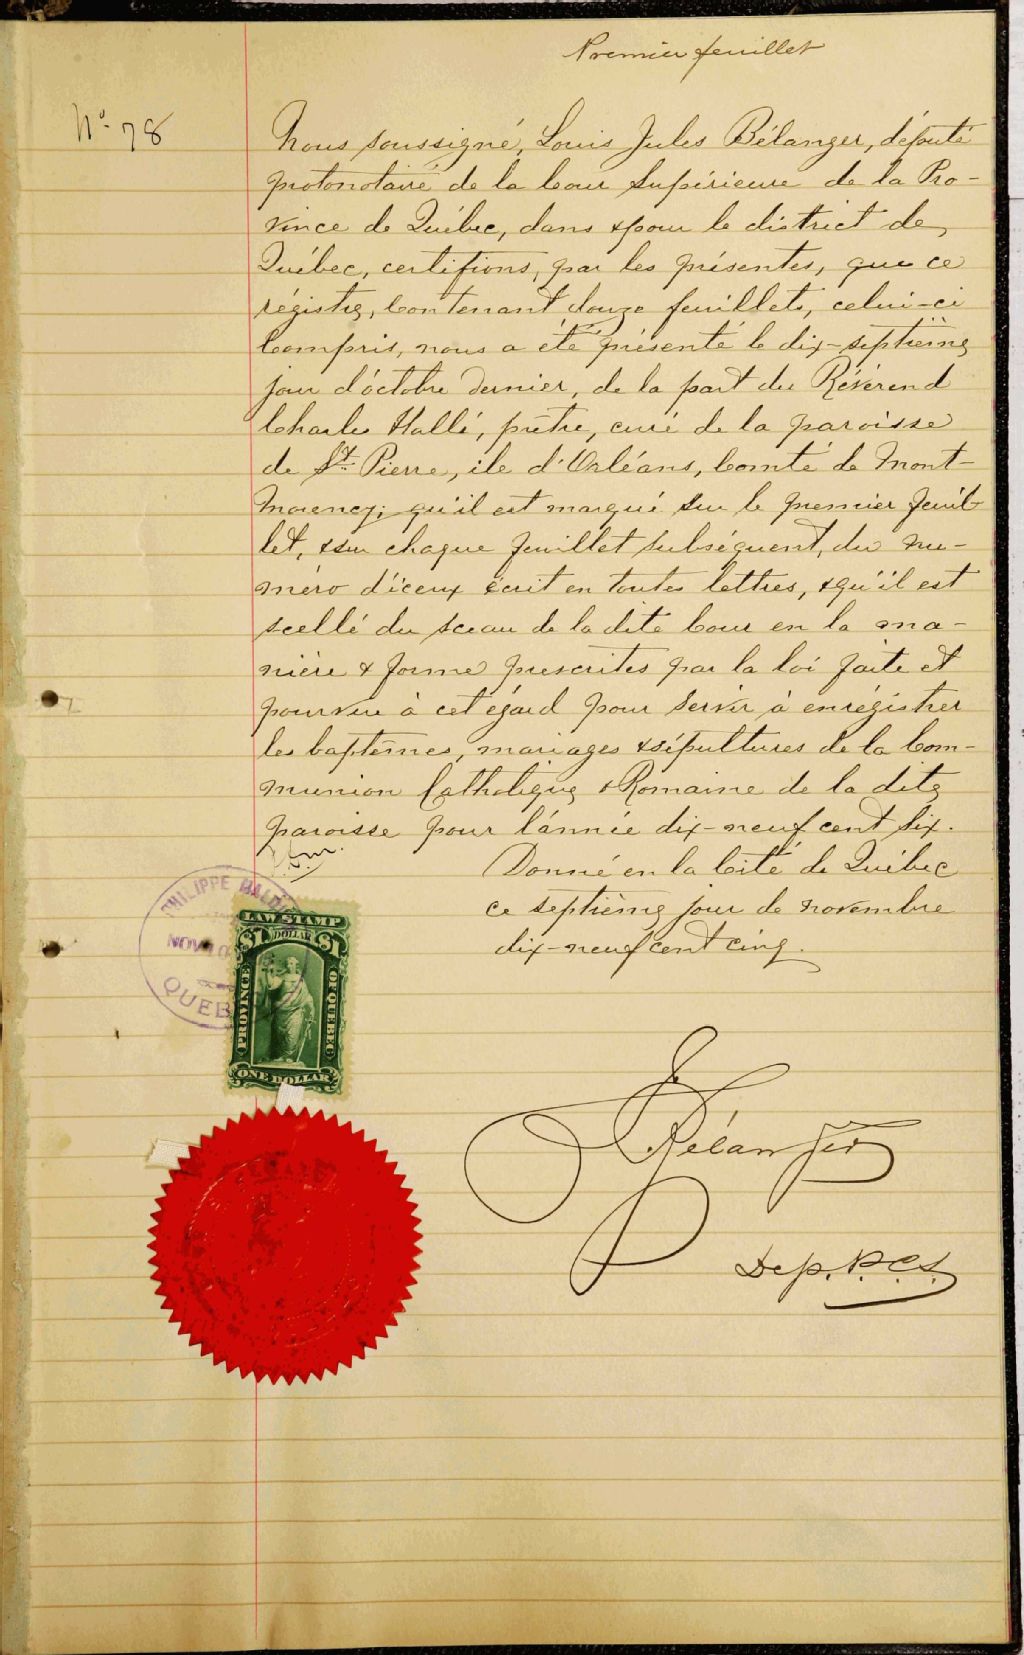 Premier feuillet
No 78
Nous soussigné, Louis Jules Bélanger, député
protonotaire de la Cour Supérieure de la Pro-
vince de Québec, dans & pour le district de
Québec, certifions, par les présentes, que ce
régistre, contenant douze feuillets, celui-ci
compris, nous a été présenté le dix-septième
jour d'octobre dernier, de la part du Révérend
Charles Hallé, prêtre, curé de la paroisse
de St Pierre, ile d'Orléans, Comté de Mont-
morency; qu'il est marqué sur le premier feuil-
let, & sur chaque feuillet subséquent, du nu-
méro d'iceux écrit en toutes lettres, & qu'il est
scellé du sceau de la dite Cour en la ma-
nière & forme prescrites par la loi faite et
pourvue à cet égard pour servir à enrégistrer
les baptêmes, mariages & sépultures de la Com-
munion Catholique & Romaine de la dite
paroisse pour l'année dix-neuf cent six.
Donné en la Cité de Québec
ce septième jour de novembre
dix-neuf cent cinq.
PHILIPPE
NOV
QUEB
LAW STAMP
$1 DOLLAR $1
PROVINCE OF QUEBEC
ONE DOLLAR
Bélanger
Dep. P.C.S.